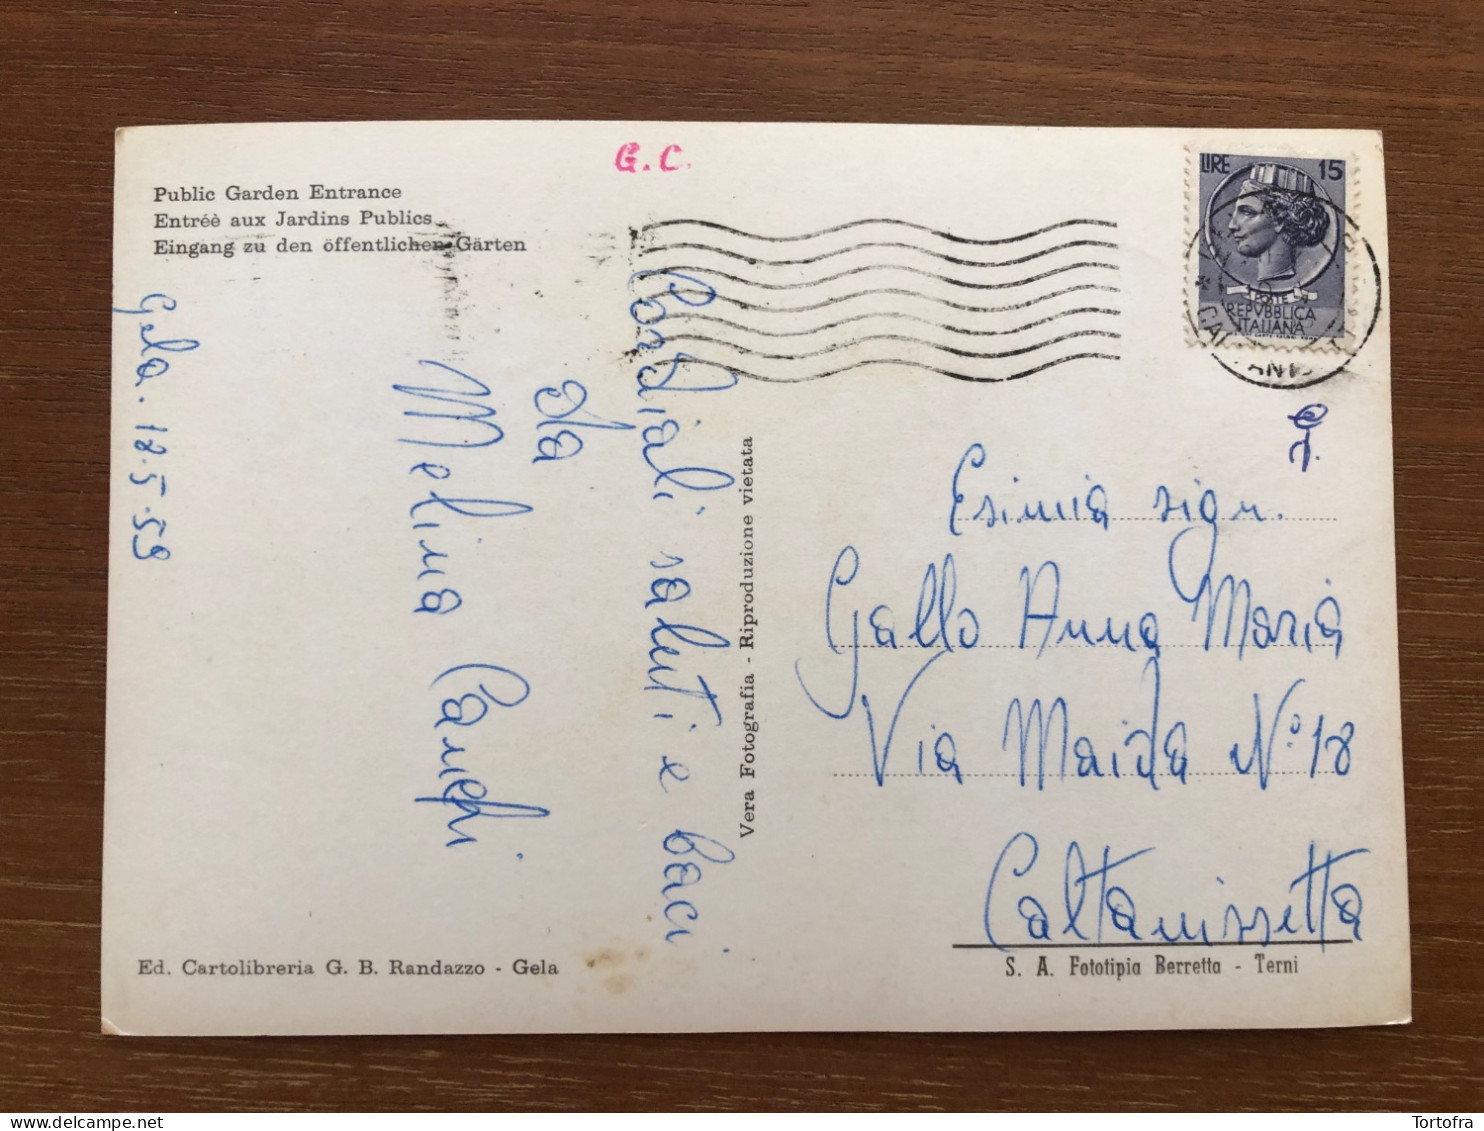 G. C.
Public Garden Entrance
Entréè aux Jardins Publics
Eingang zu den öffentlichen Gärten
LIRE 15
POSTE
REPVBBLICA
ITALIANA
Gela. 18.5.59
Cordiali saluti e baci
da
Melina
Vera Fotografia - Riproduzione vietata
Esimia sign.
Gallo Anna Maria
Via Maida N.° 18
Caltanissetta
Ed. Cartolibreria G. B. Randazzo - Gela
S. A. Fototipia Berretta - Terni
Tortofra